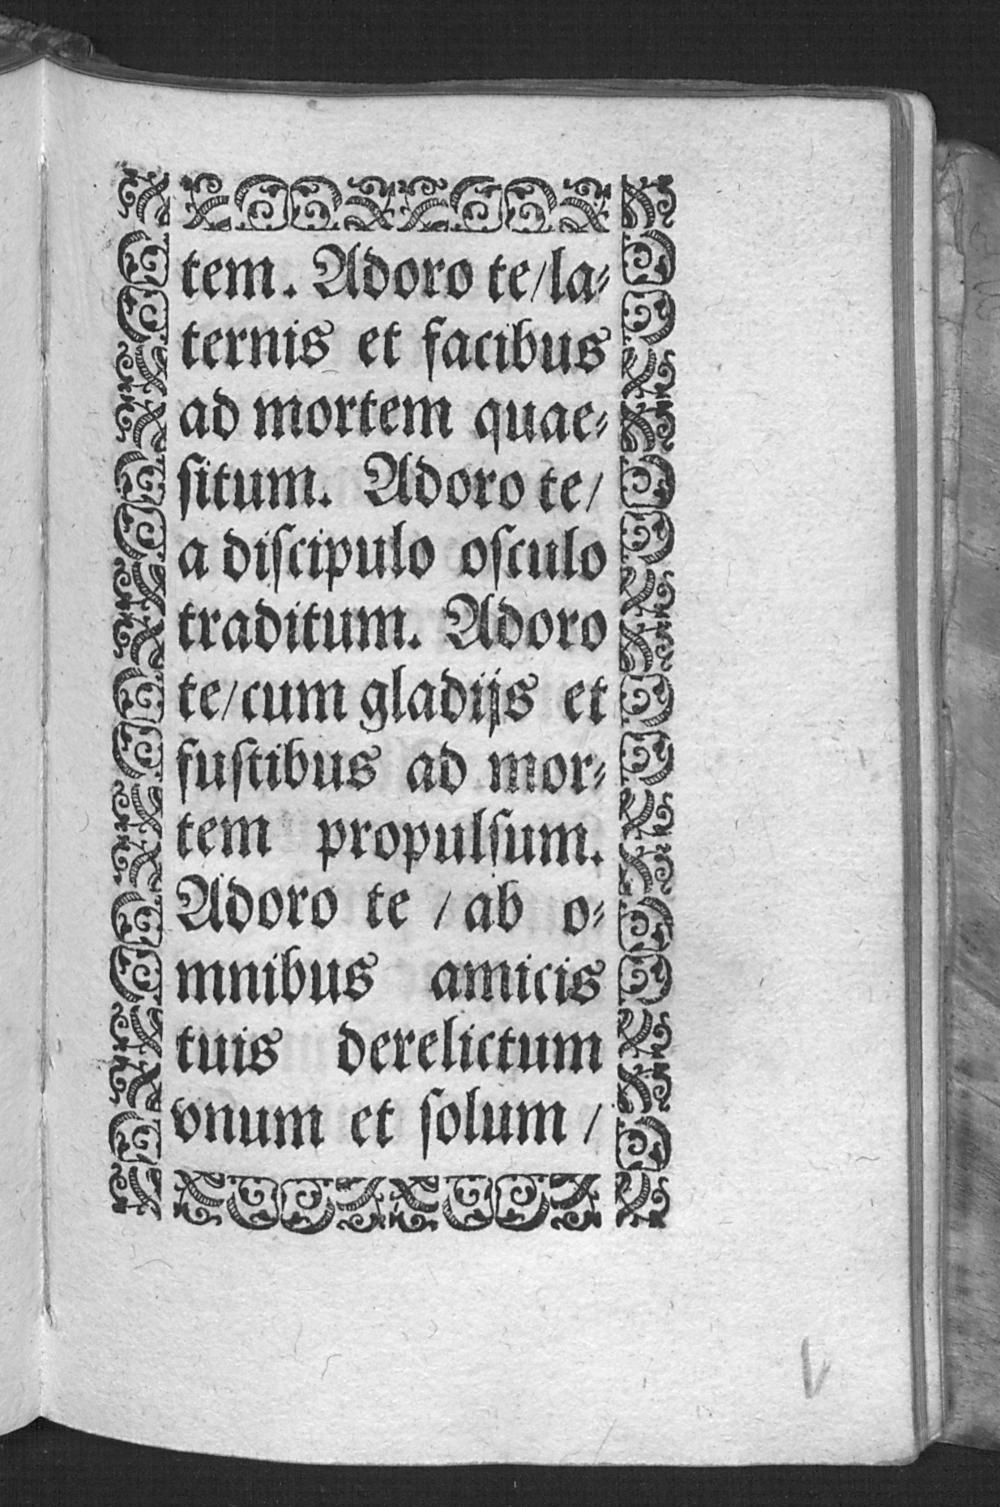 tem. Adoro te/la⸗
ternis et facibus
ad mortem quae⸗
ſitum. Adoro te/
a diſcipulo oſculo
traditum. Adoro
te/cum gladijs et
fuſtibus ad mor⸗
tem propulſum.
Adoro te / ab o⸗
mnibus amicis
tuis derelictum
vnum et ſolum /